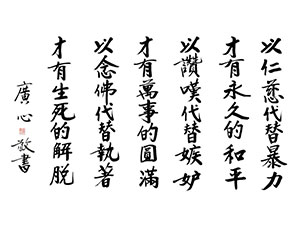 以仁慈代替暴力
才有永久的和平
以讚嘆代替嫉妒
才有萬事的圓滿
以念佛代替執著
才有生死的解脫
廣心敬書